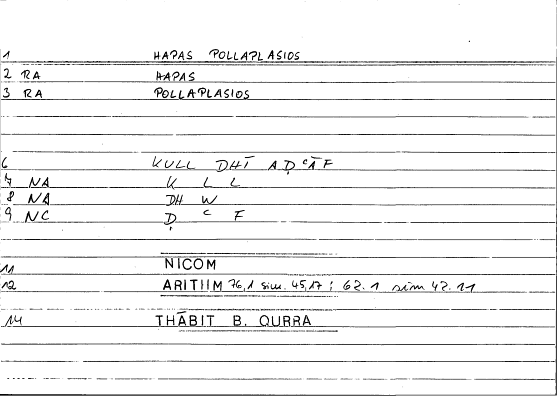 1 HAPAS POLLAPLASIOS
2 RA HAPAS
3 RA POLLAPLASIOS
6 KULL DHĪ AḌʿĀF
7 NA K L L
8 NA DH W
9 NC Ḍ ʿ F
11 NICOM
12 ARITHM 76,1 sim. 45,17; 62.1 sim 42.11
14 THĀBIT B. QURRA